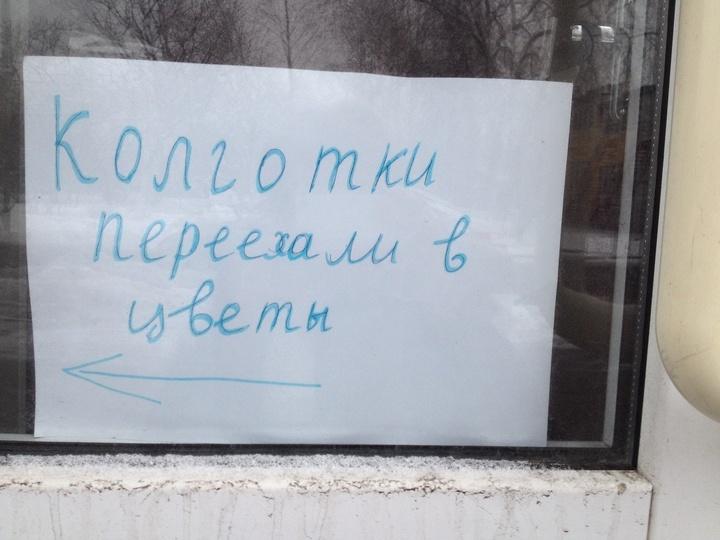 Колготки
переехали в
цветы